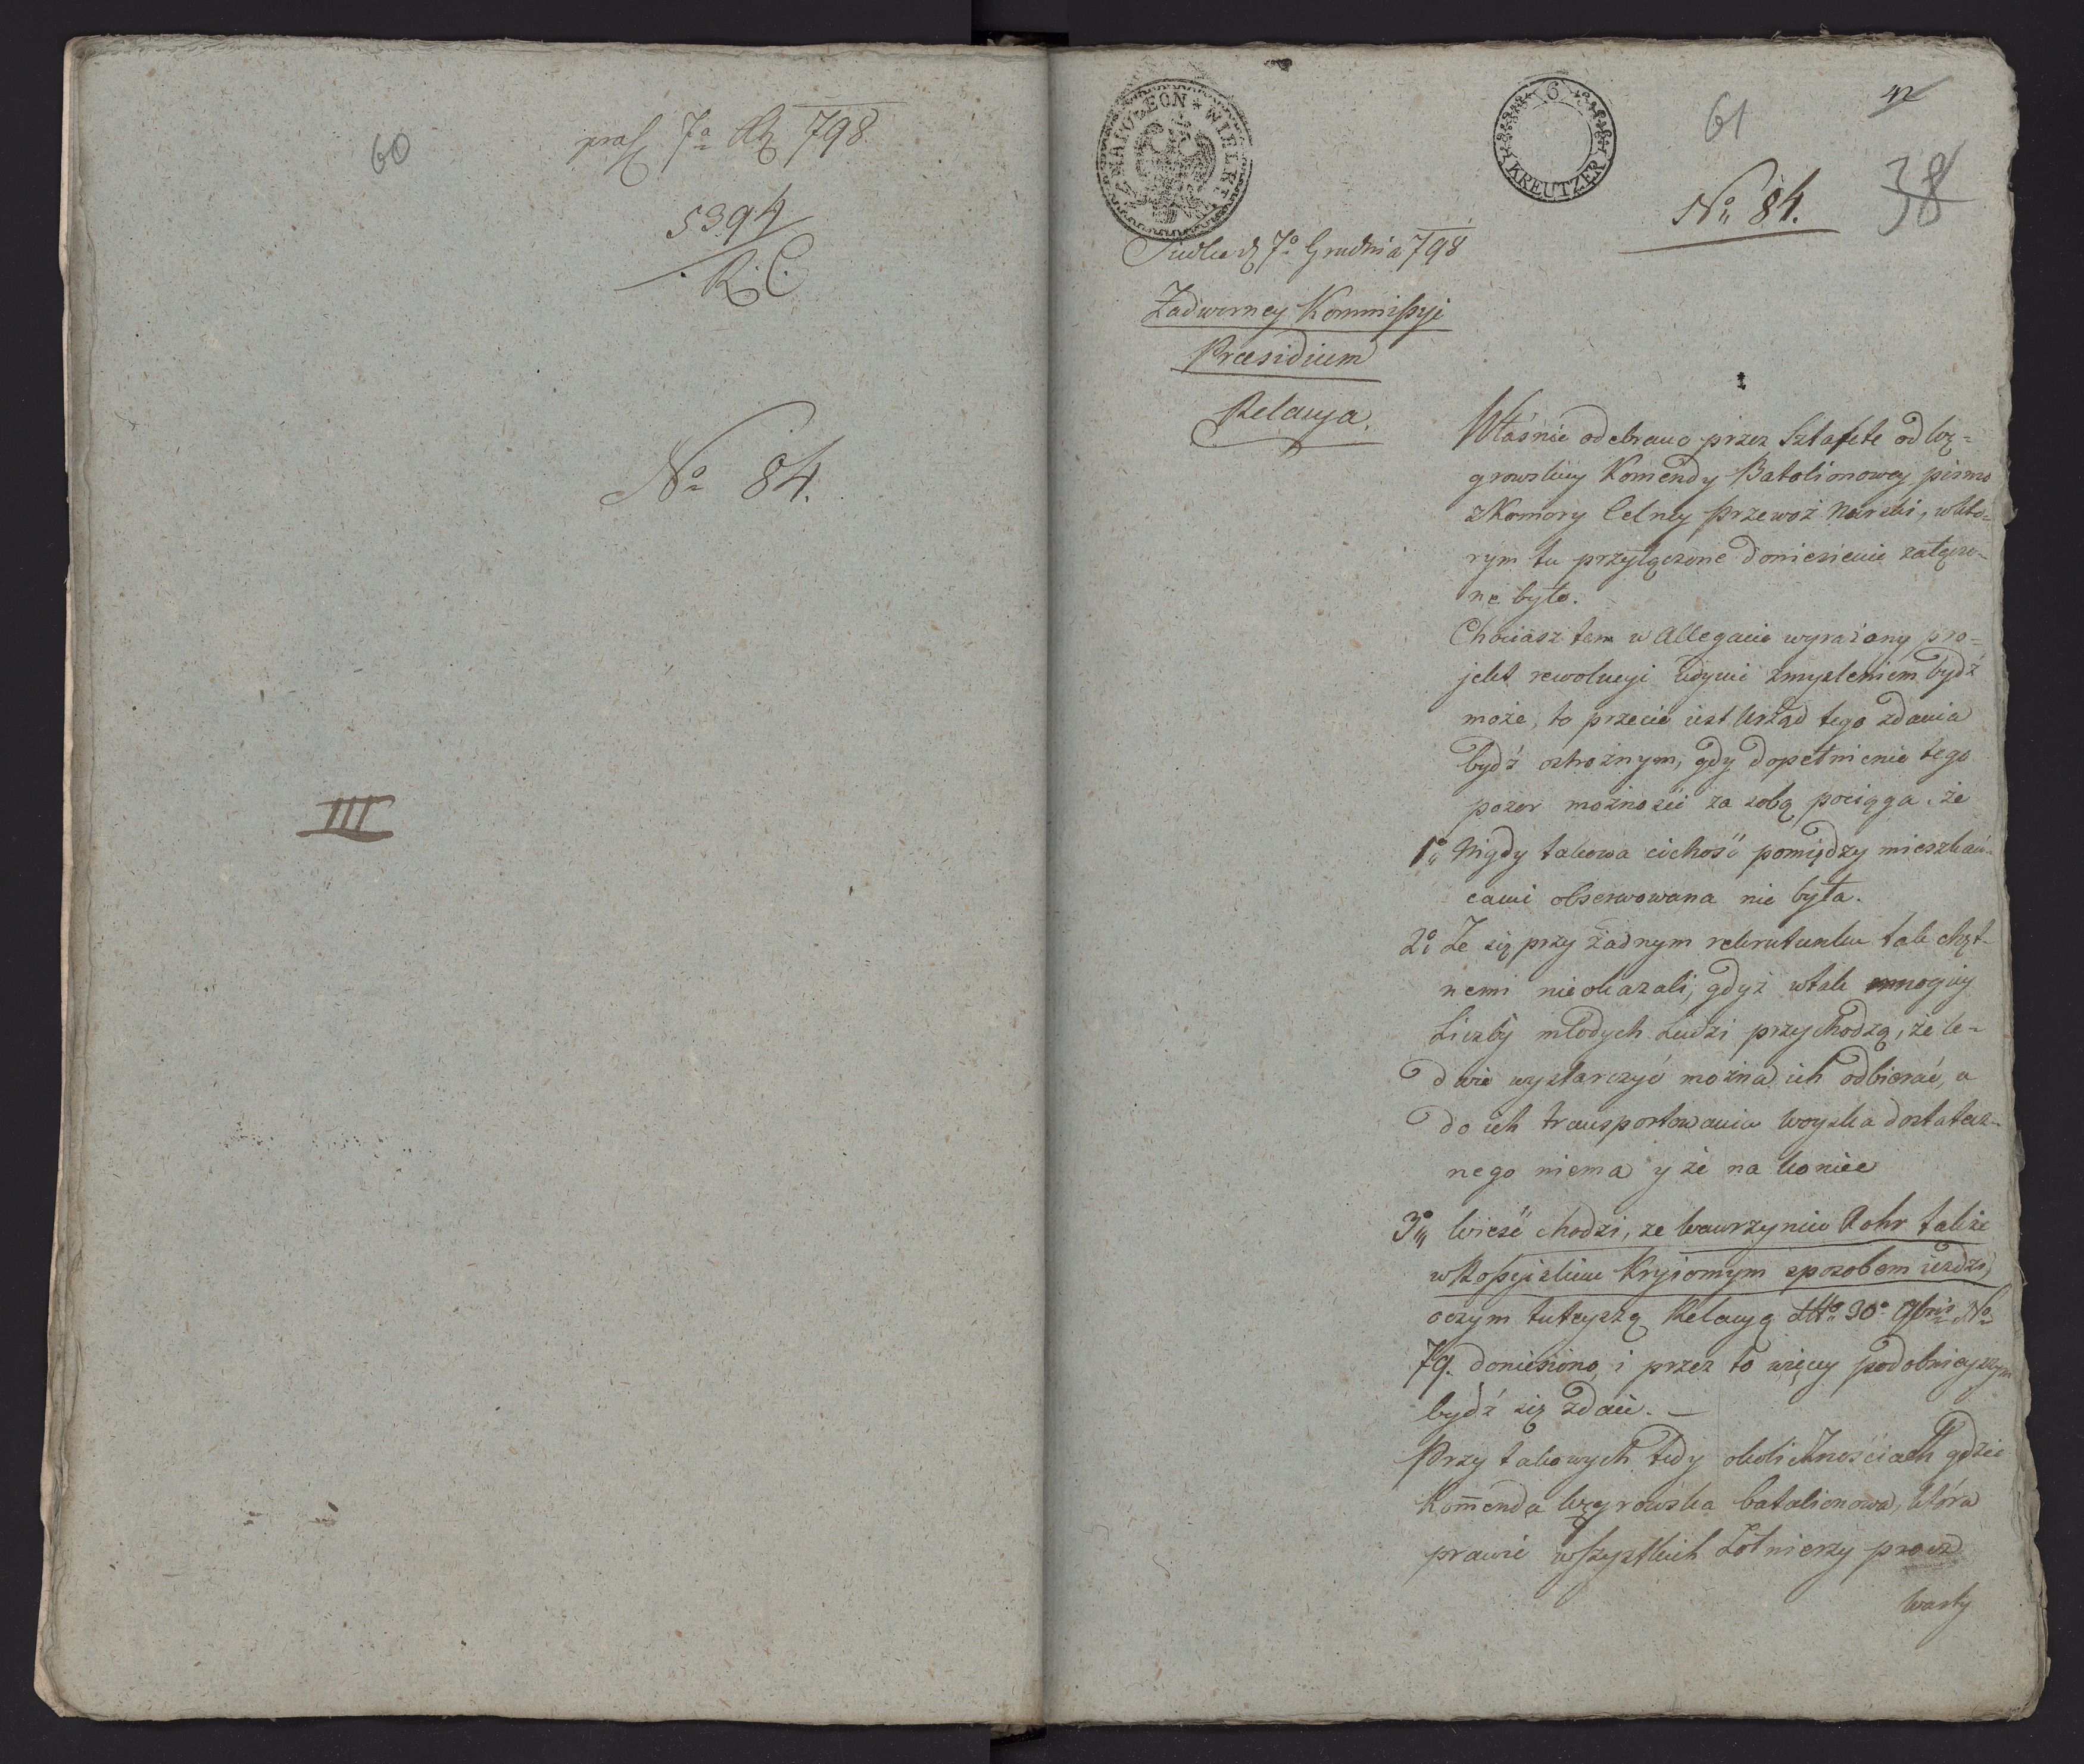 60
7a 798
5394
R. C.
No 84.
III
NAPOLEON * WIELKI
6
KREUTZER
61
42
No 84.
38
Siedlce d 7o Grudnia 798
Zadworney Kommissyi
Præsidium
Relacya.
Właśnie odebrano przez Sztafetę od Wę=
growskiey Komendy Batalionowey pismo
z Komory Celney Przewoz Nurski, w któ=
rym tu przyłączone doniesienie załączo=
ne było.
Chociasz ten w Allegacie wyrażony pro=
jekt rewolucyi iedynie zmysleniem bydź
może, to przecie iest Urząd tego zdania
bydź ostrożnym, gdy dopełnienie tego
pozor możności za sobą pociąga. że
1o Nigdy takowa cichość pomiędzy mieszkań=
cami obserwowana nie była.
2o Ze się przy żadnym rekrutunku tak chęt=
nemi nie okazali, gdyż w tak mnogiey
Liczby młodych Ludzi przychodzą, że le=
dwie wystarczyć można ich odbierać, a
do ich transportowania woyska dostatecz=
nego niema y że na koniec
3o Wieść chodzi, ze Wawrzyniec Rohr także
w Rossyiskim Kryiomym sposobem iezdzi,
o czym tuteyszą Relacyą dtto 30o 9bris No
79. doniesiono, i przez to więcey podobnieyszym
bydź się zdaie. —
Przy takowych tedy okolicznościach gdzie
Kom̄enda Węgrowska batalionowa, która
prawie wszystkich Żołnierzy
warty